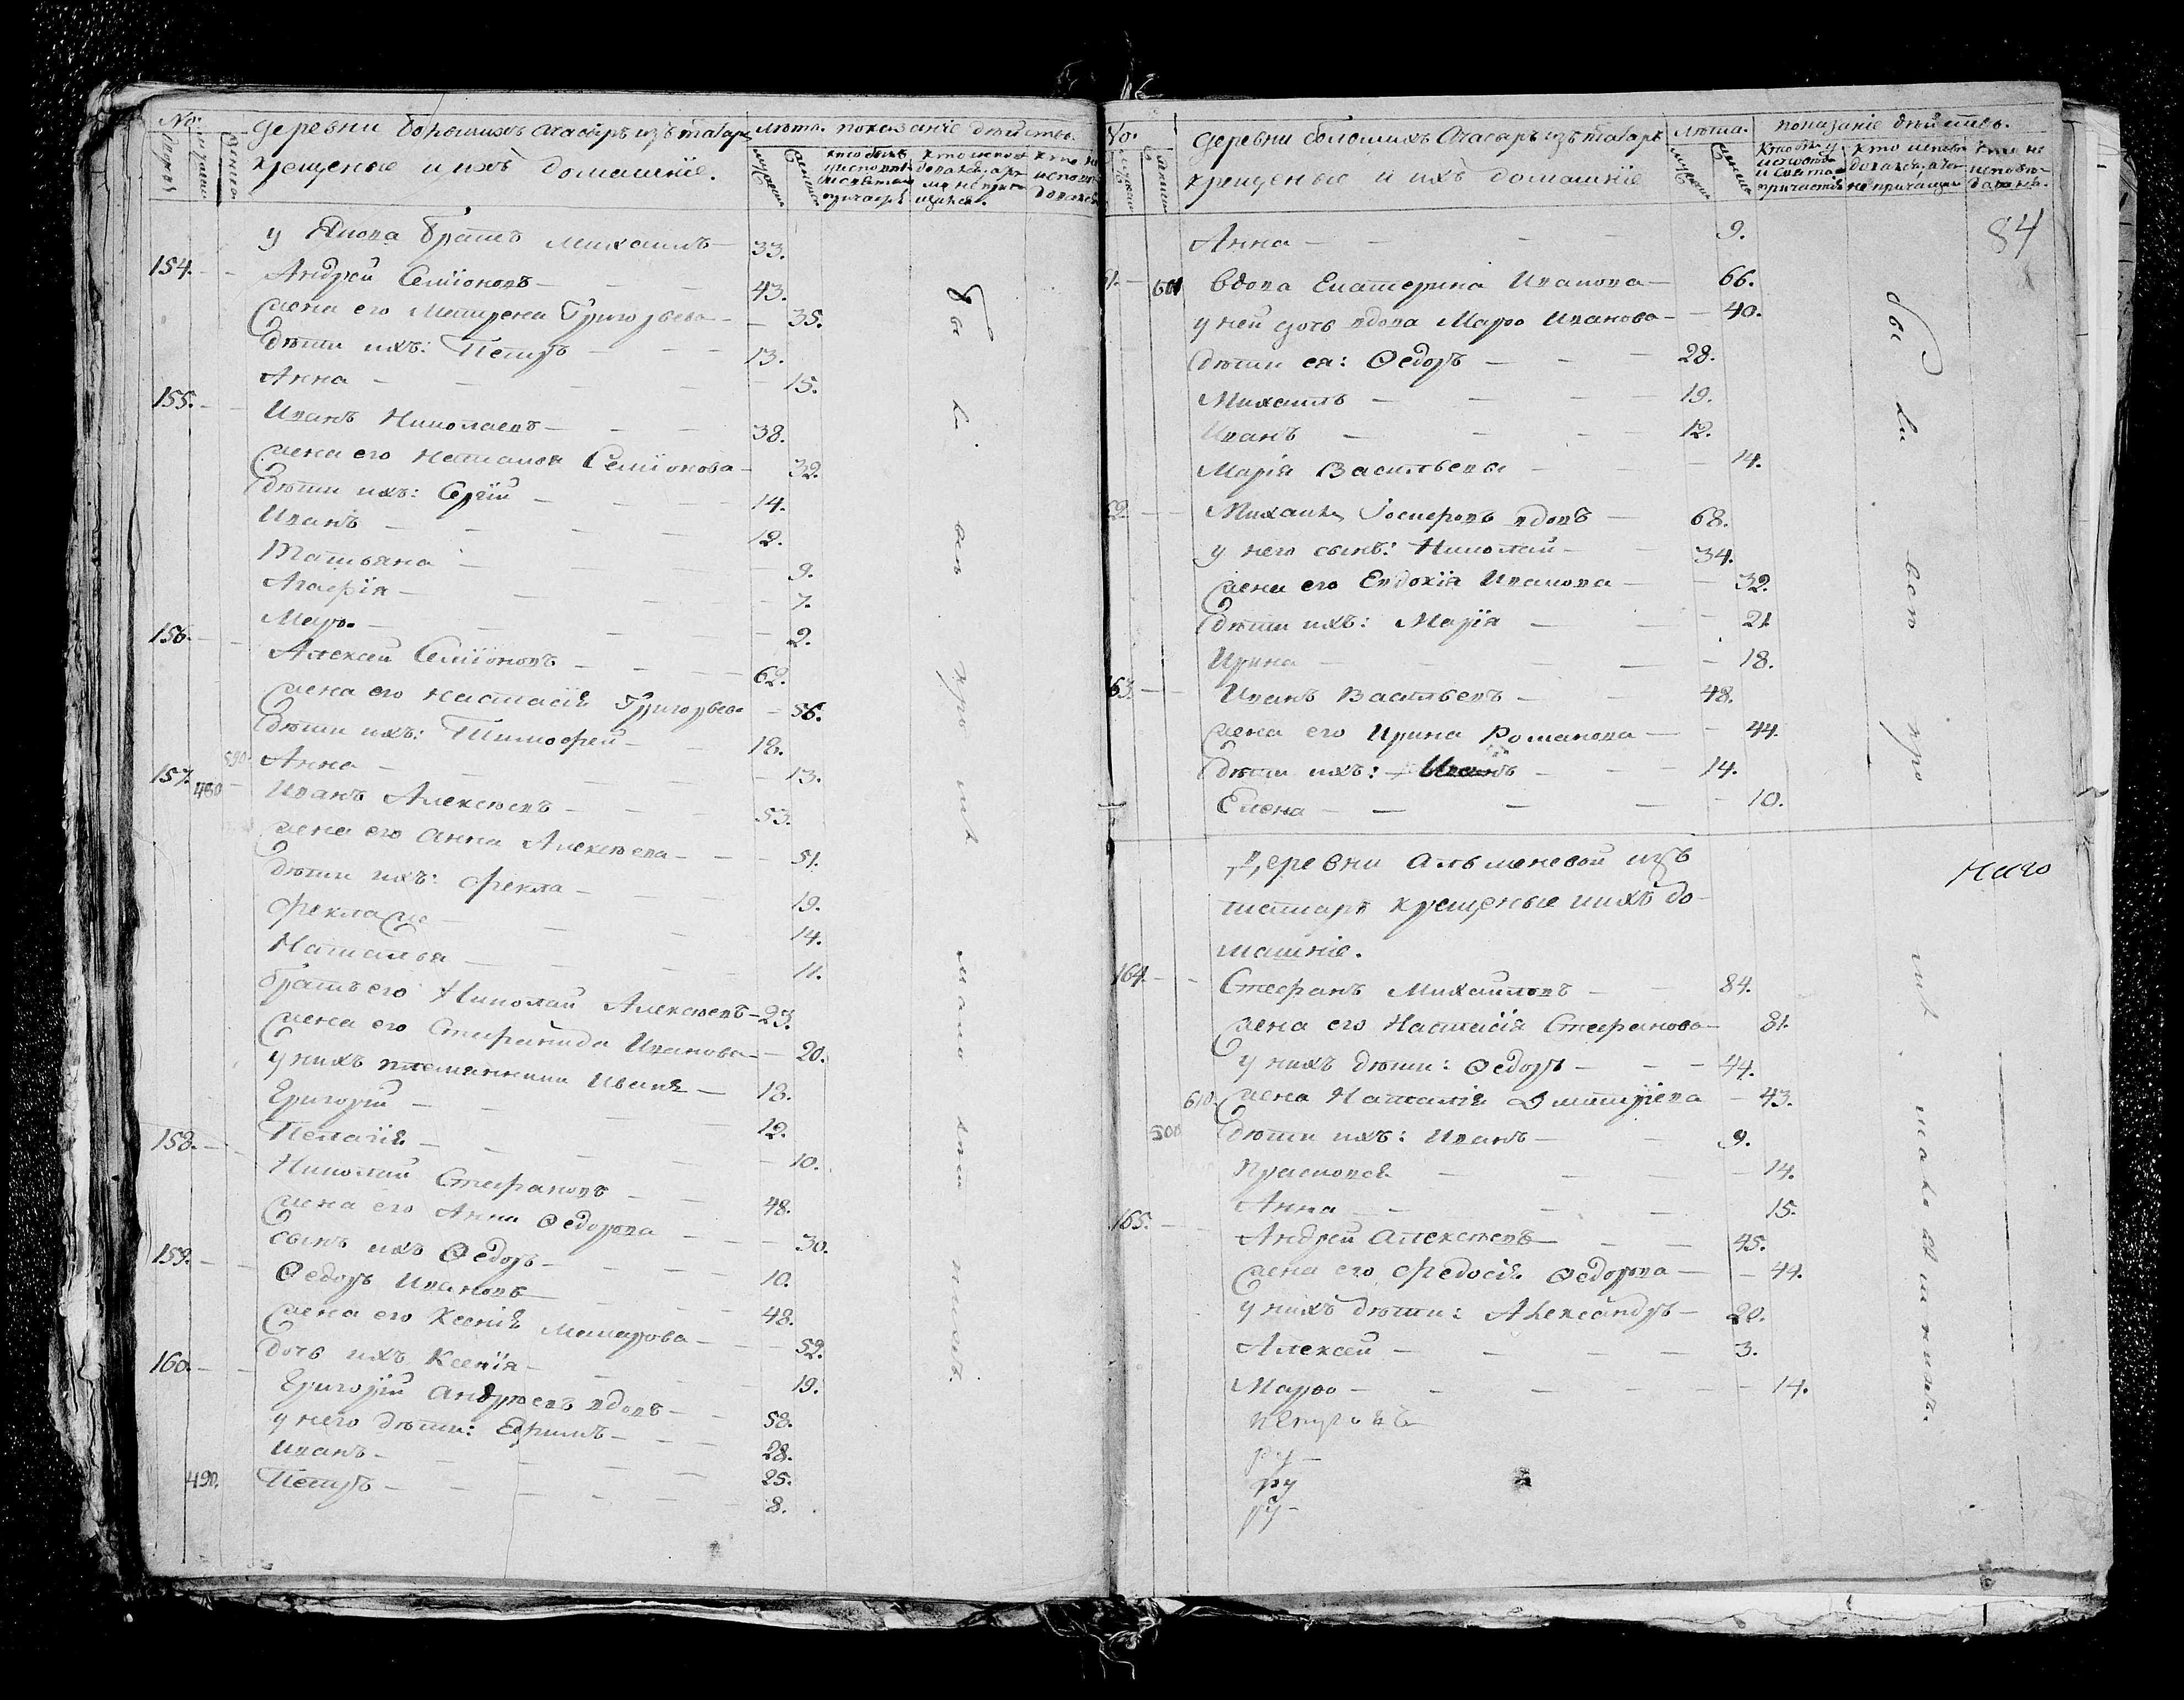 No: деревни большихъ Атасыръ изъ татаръ лѣта. показанiе дѣйства.
крещеные и ихъ домашнiе.
у Якова братъ Михаилъ — 33.
154. Андрей Семiоновъ — 43.
Жена его Матрена Григорьева — 35.
Дѣти ихъ: Петръ — 13.
Анна — 15.
155. Иванъ Николаевъ — 38.
Жена его Наталья Семiонова — 32.
Дѣти ихъ: Сергiй — 14.
Иванъ — 12.
Татьяна — 9.
Агафiя — 7.
Марѳа — 2.
156. Алексей Семiоновъ — 62.
Жена его Настасiя Григорьева — 56.
Дѣти ихъ: Тимофей — 18.
590. Анна — 13.
157. 480 Иванъ Алексѣевъ — 53.
Жена его Анна Алексѣева — 51.
Дѣти ихъ: Фекла — 19.
Фекла же — 14.
Наталья — 11.
Братъ его Николай Алексѣевъ — 23.
Жена его Стефанида Иванова — 20.
у нихъ племянники Иванъ — 18.
Григорiй — 12.
Пелагiя — 10.
158. Николай Стефановъ — 48.
Жена его Анна Ѳедорова — 30.
сынъ ихъ Ѳедоръ — 10.
159. Ѳедоръ Ивановъ — 48.
Жена его Ксенiя — 52.
Дочь ихъ Ксенiя — 19.
160. Григорiй Андрѣевъ вдовъ — 58.
у него дѣти: Ефимъ — 28.
Иванъ — 25.
490. Петръ — 8.
No. деревни большихъ Атасыръ изъ татаръ лѣта. показанiе дѣйства.
крещеные и ихъ домашнiе
84
Анна — 9.
61. 600 Вдова Екатерина Иванова — 66.
у ней дочь вдова Марѳа Иванова — 40.
Дѣти ея: Ѳедоръ — 28.
Михаилъ — 19.
Иванъ — 12.
Марiя Васильева — 14.
62. Михаилъ Iосифовъ вдовъ — 68.
у него сынъ: Николай — 34.
Жена его Евдокiя Иванова — 32.
Дѣти ихъ: Марiя — 21
Ирина — 18.
63. Иванъ Васильевъ — 48.
Жена его Ирина Романова — 44.
Дѣти ихъ: Иванъ — 14.
Елена — 10.
Деревни Альменевой изъ
татаръ крещеные и ихъ до-
машнiе.
164. Стефанъ Михаиловъ — 84.
Жена его Настасiя Стефанова — 81.
у нихъ дѣти: Ѳедоръ — 44.
610. Жена Наталiя Димитрiева — 43.
500 Дѣти ихъ: Иванъ — 9.
Прасковья — 14.
Анна — 15.
165. Андрей Алексѣевъ — 45.
Жена его Федосiя Ѳедорова — 44.
у нихъ дѣти: Александръ — 20.
Алексей — 3.
Марѳа — 14.
ру
ру
ру